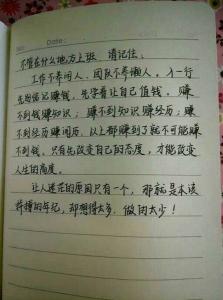 Date:
不管在什么地方上班，请记住：
工作不养闲人，团队不养懒人。入一行
先别惦记赚钱，先学着让自己值钱。赚
不到钱赚知识；赚不到知识赚经历；赚
不到经历赚阅历。以上都赚到了就不可能赚
不到钱。只有先改变自己的态度，才能改变
人生的高度。
让人迷茫的原因只有一个，那就是本该
拼搏的年纪，却想得太多，做的太少！